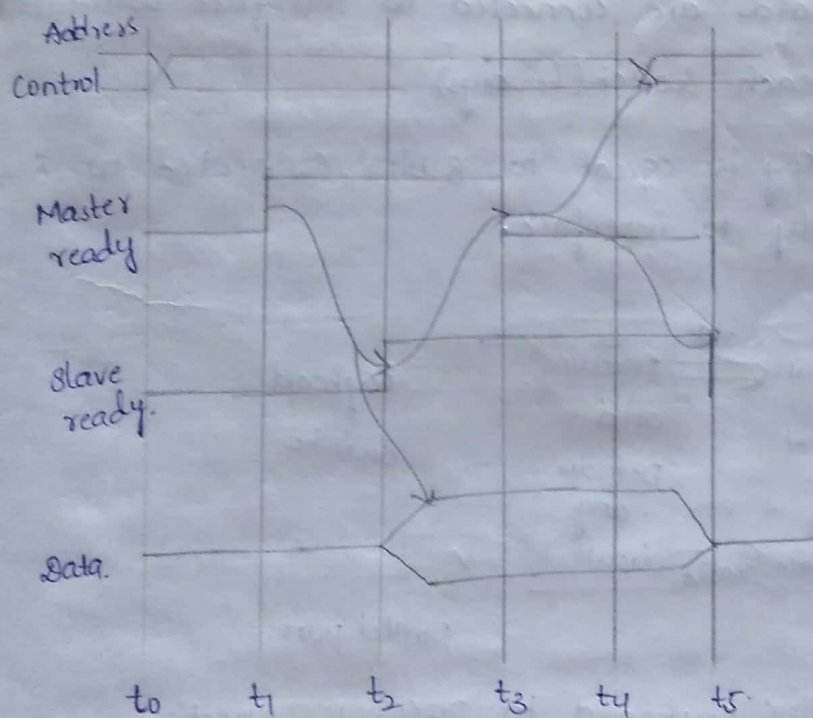 Address
Control
Master
ready
Slave
ready.
Data.
t0 t1 t2 t3 t4 t5.